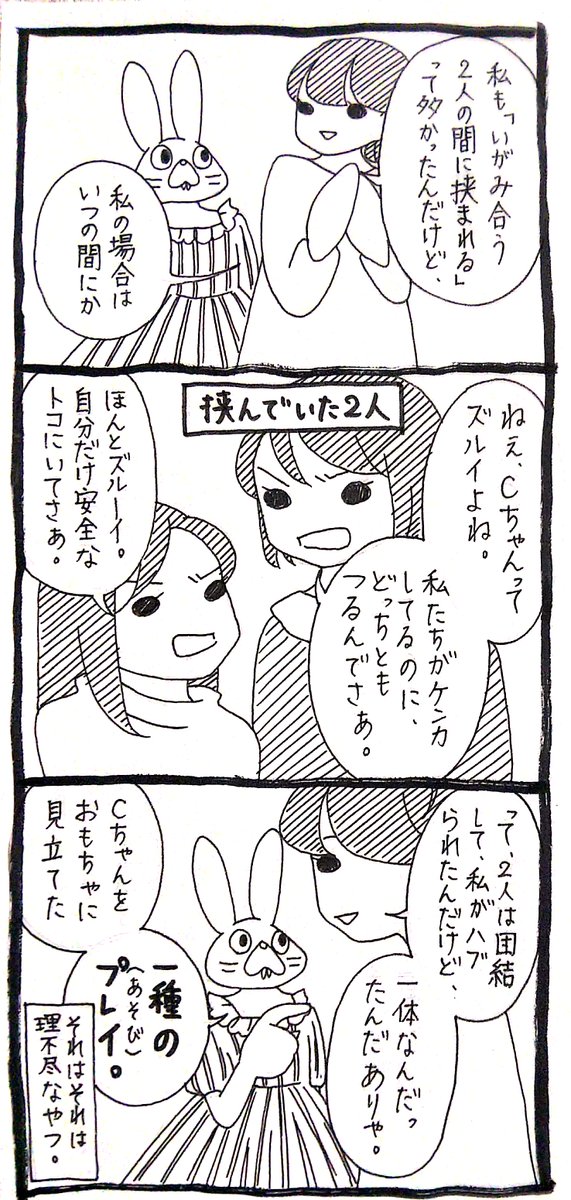 私も「いがみ合う
2人の間に挟まれる」
って多かったんだけど、
私の場合は
いつの間にか
挟んでいた2人
ねぇ、Cちゃんって
ズルイよね。
私たちがケンカ
してるのに、
どっちとも
つるんでさぁ。
ほんとズルーイ。
自分だけ安全な
トコにいてさぁ。
って、2人は団結
して、私がハブ
られたんだけど、
一体なんだっ
たんだありゃ。
Cちゃんを
おもちゃに
見立てた
一種の
プレイ。
(あそび)
それはそれは
理不尽なやつ。